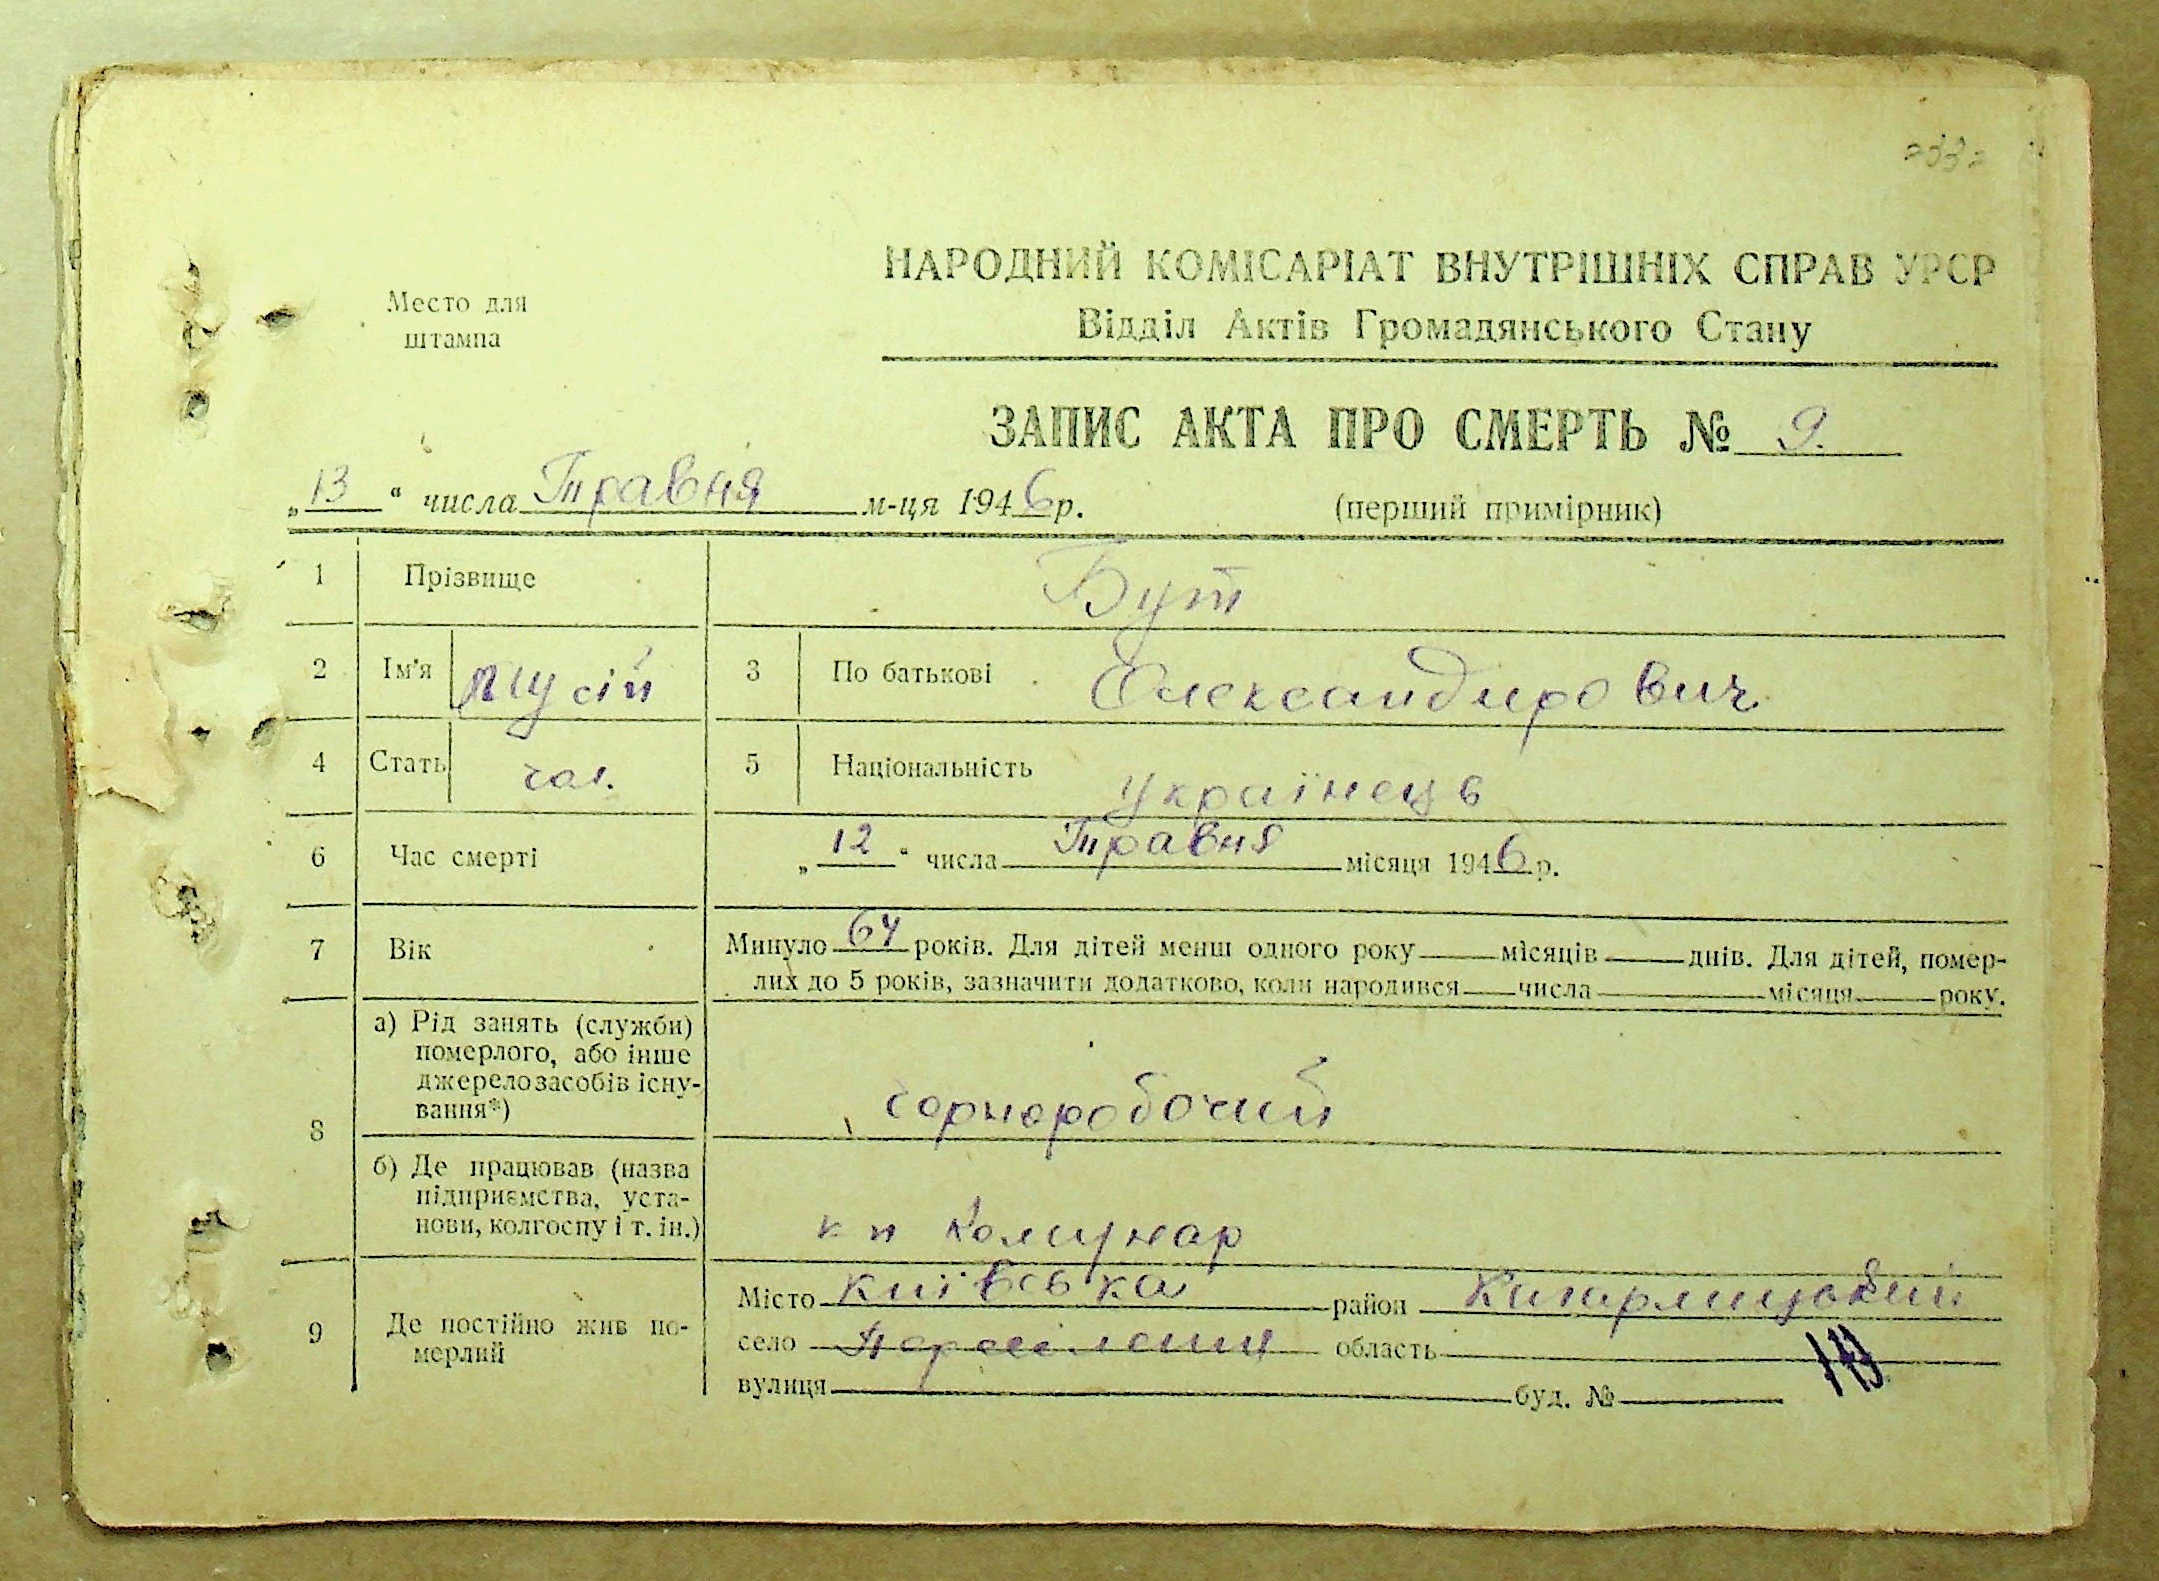 НАРОДНИЙ КОМІСАРІАТ ВНУТРІШНІХ СПРАВ УРСР
Відділ Актів Громадянського Стану
Место для
штампа
ЗАПИС АКТА ПРО СМЕРТЬ № 9.
„13“ числа Травня м-ця 1946 р.
(перший примірник)
1 Прізвище Бут
2 Ім'я Мусій 3 По батькові Олександрович
4 Стать чол. 5 Національність Українець
6 Час смерті „12“ числа Травня місяця 1946 р.
7 Вік Минуло 64 років. Для дітей менш одного року місяців днів. Для дітей, помер-
лих до 5 років, зазначити додатково, коли народився числа місяця року.
8 а) Рід занять (служби)
померлого, або інше
джерело засобів існу-
вання*)
чорноробочий
б) Де працював (назва
підприємства, уста-
нови, колгоспу і т. ін.)
к п Комунар
9 Де постійно жив по-
мерлий
Місто Київська район Кагарлицький
село Переселення область
вулиця буд. №